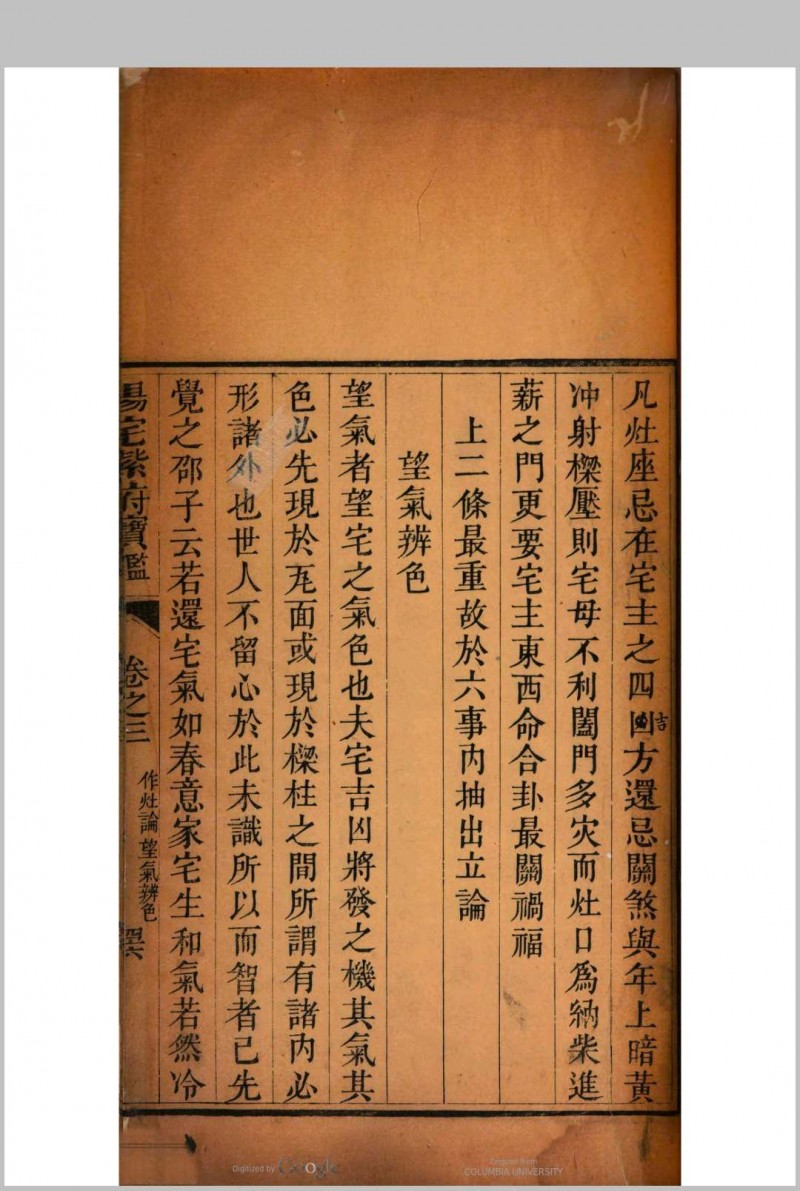 凡灶座忌在宅主之四凶吉方還忌關煞與年上暗黃
冲射樑壓則宅母不利闔門多灾而灶口爲納柴進
薪之門更要宅主東西命合卦最關禍福
上二條最重故於六事內抽出立論
望氣辨色
望氣者望宅之氣色也夫宅吉凶將發之機其氣其
色必先現於瓦面或現於樑柱之間所謂有諸內必
形諸外也世人不留心於此未識所以而智者已先
覺之邵子云若還宅氣如春意家宅生和氣若然冷
陽宅紫府寶鑑
卷之三
作灶論 望氣辨色
Digitized by Google
Original from
COLUMBIA UNIVERSITY